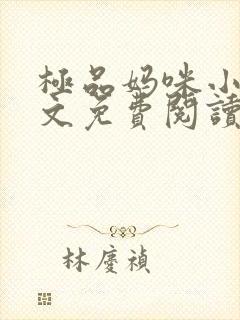 極品妈咪小
文免費閱讀
林慶禎